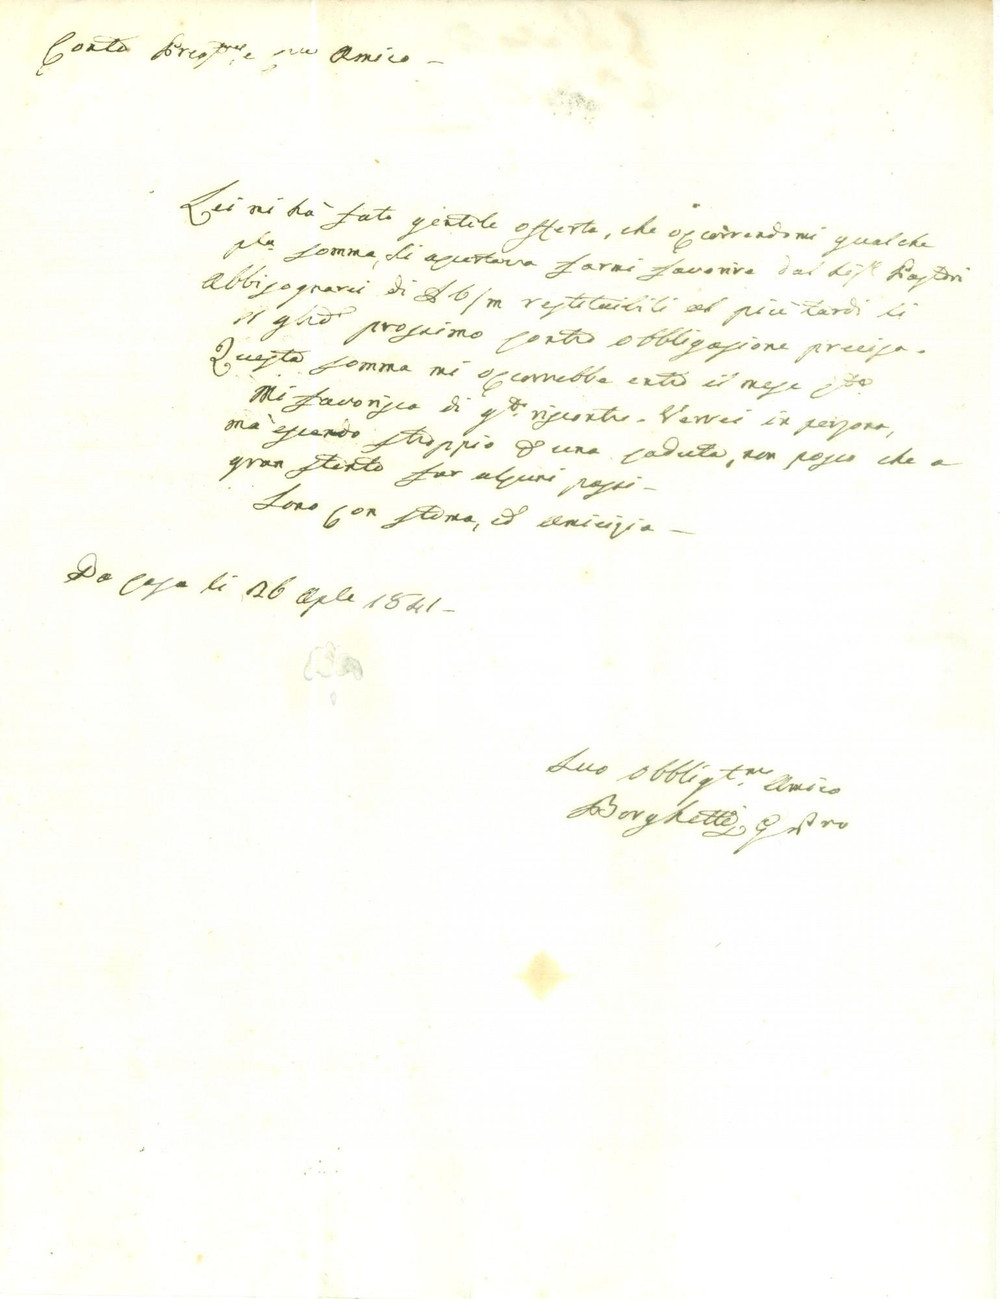 Conte Preg.mo e suo Amico -
Lei mi hà fato gentile offerta, che occorrendomi qualche
somma, si aspettava farmi favorire dal Sig.r Pastori
Abbisognarei di £ 6/m restituibili al più tardi li
prossimo contro obbligazione precisa.
Questa somma mi occorrebbe entro il mese
Mi favorisca di riscontro. Verrei in persona,
mà essendo stroppio d'una caduta, non posso che a
gran stento far alcuni passi -
Sono con stima, ed amicizia -
Da casa li 26 Aple 1841 -
Suo obbligt.mo Amico
Borghetti